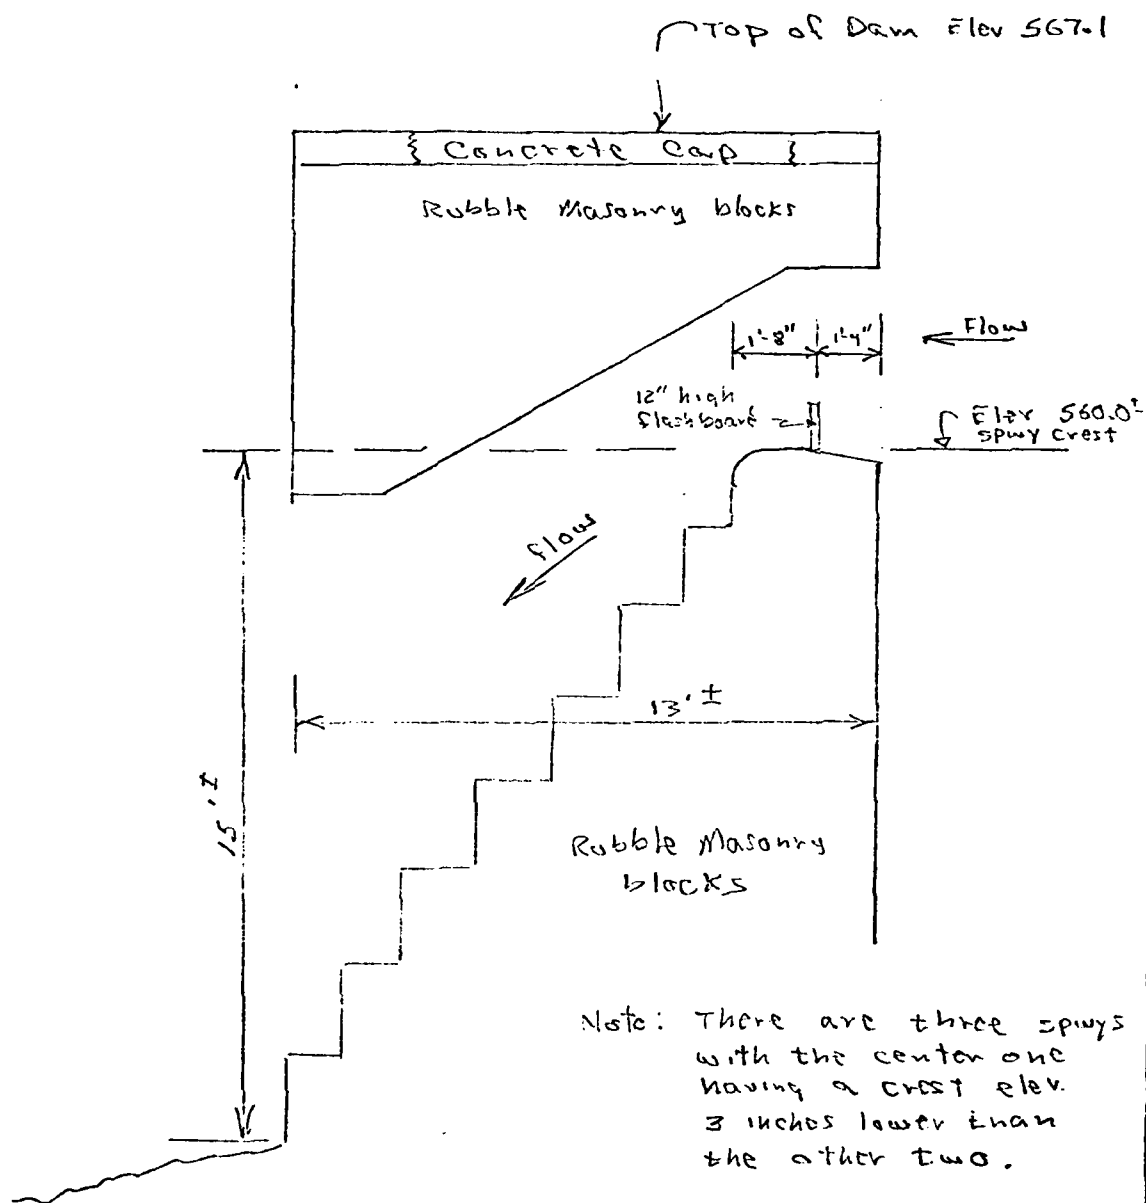 Top of Dam Elev 567.1
{ Concrete Cap }
Rubble Masonry blocks
Flow
1'-8"
1'-4"
12" high
flashboard
Elev 560.0±
spwy crest
flow
13'±
15'±
Rubble Masonry
blocks
Note: There are three spwys
with the center one
having a crest elev.
3 inches lower than
the other two.